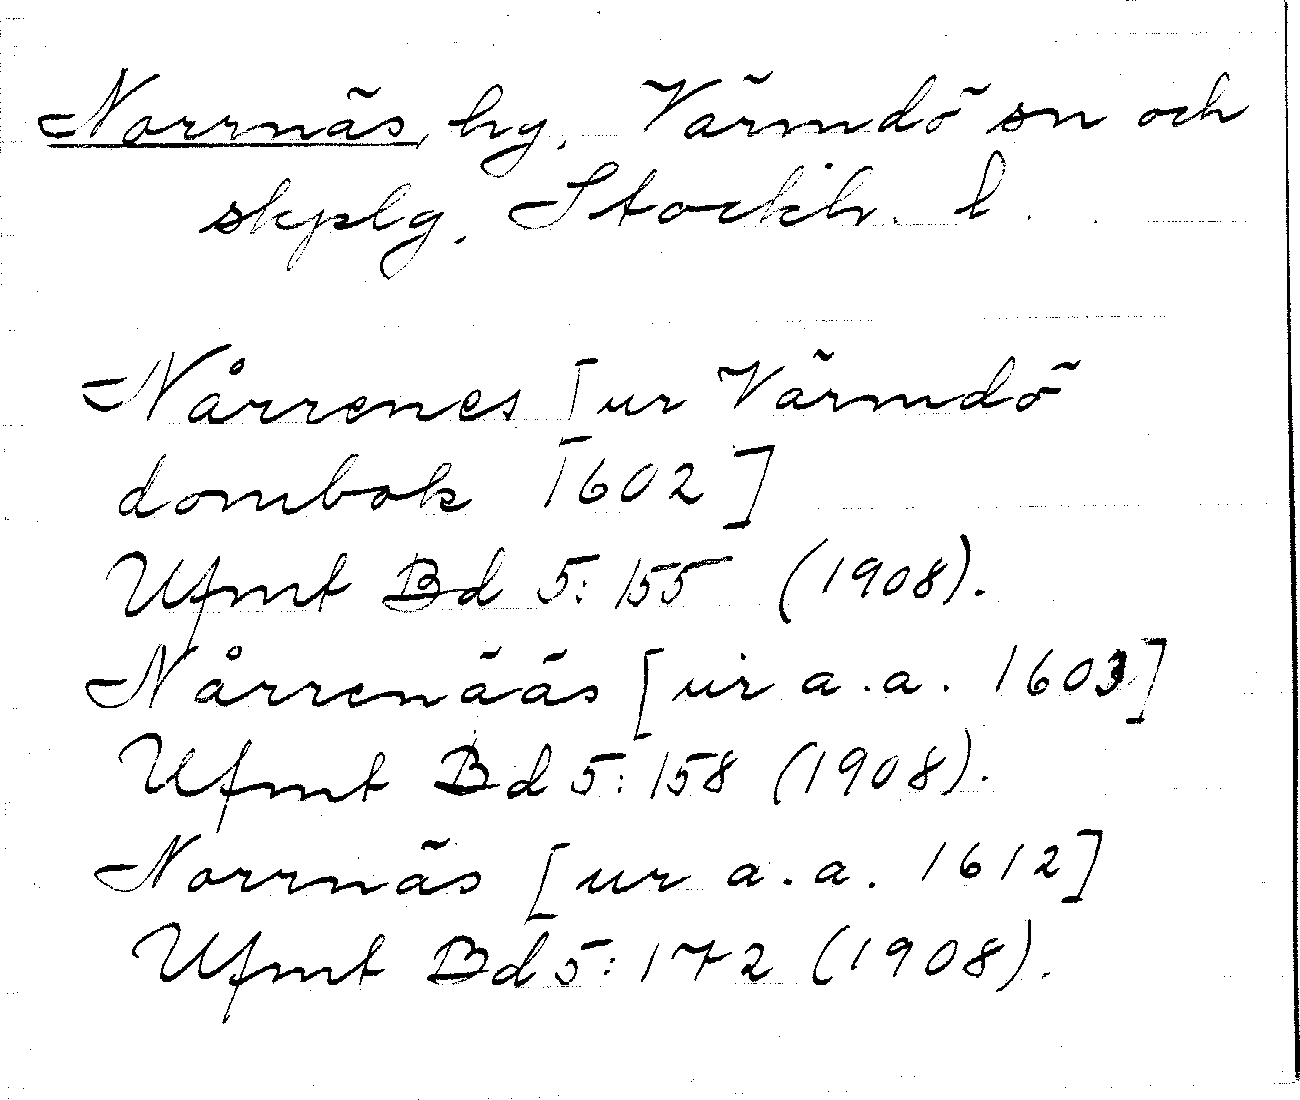 Norrnäs, by, Värmdö sn och
skplg. Stockh. l.
Nårrenes [ur Värmdö
dombok 1602]
Ufmt Bd 5: 155 (1908).
Nårrenääs [ur a.a. 1603]
Ufmt Bd 5: 158 (1908).
Norrnäs [ur a.a. 1612]
Ufmt Bd 5: 172 (1908).